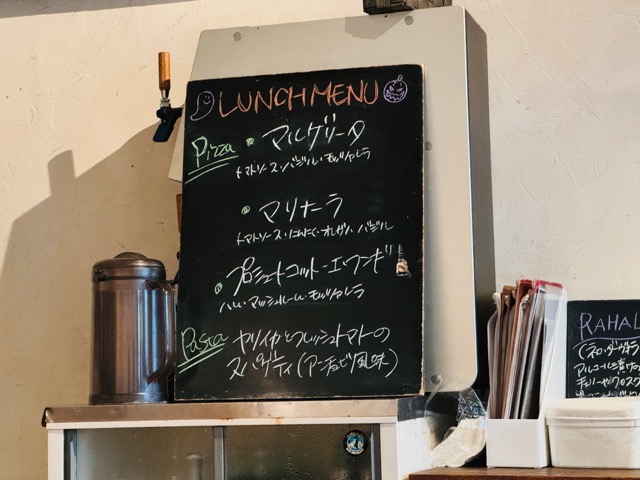 LUNCH MENU
Pizza • マルゲリータ
トマトソース・バジル・モッツァレラ
• マリナーラ
トマトソース・にんにく・オレガノ・バジル
• プロシュートコット・エ・フンギ
ハム・マッシュルーム・モッツァレラ
Pasta ヤリイカとフレッシュトマトの
スパゲティ(アンチョビ風味)
RAHAL
アルコールに漬け